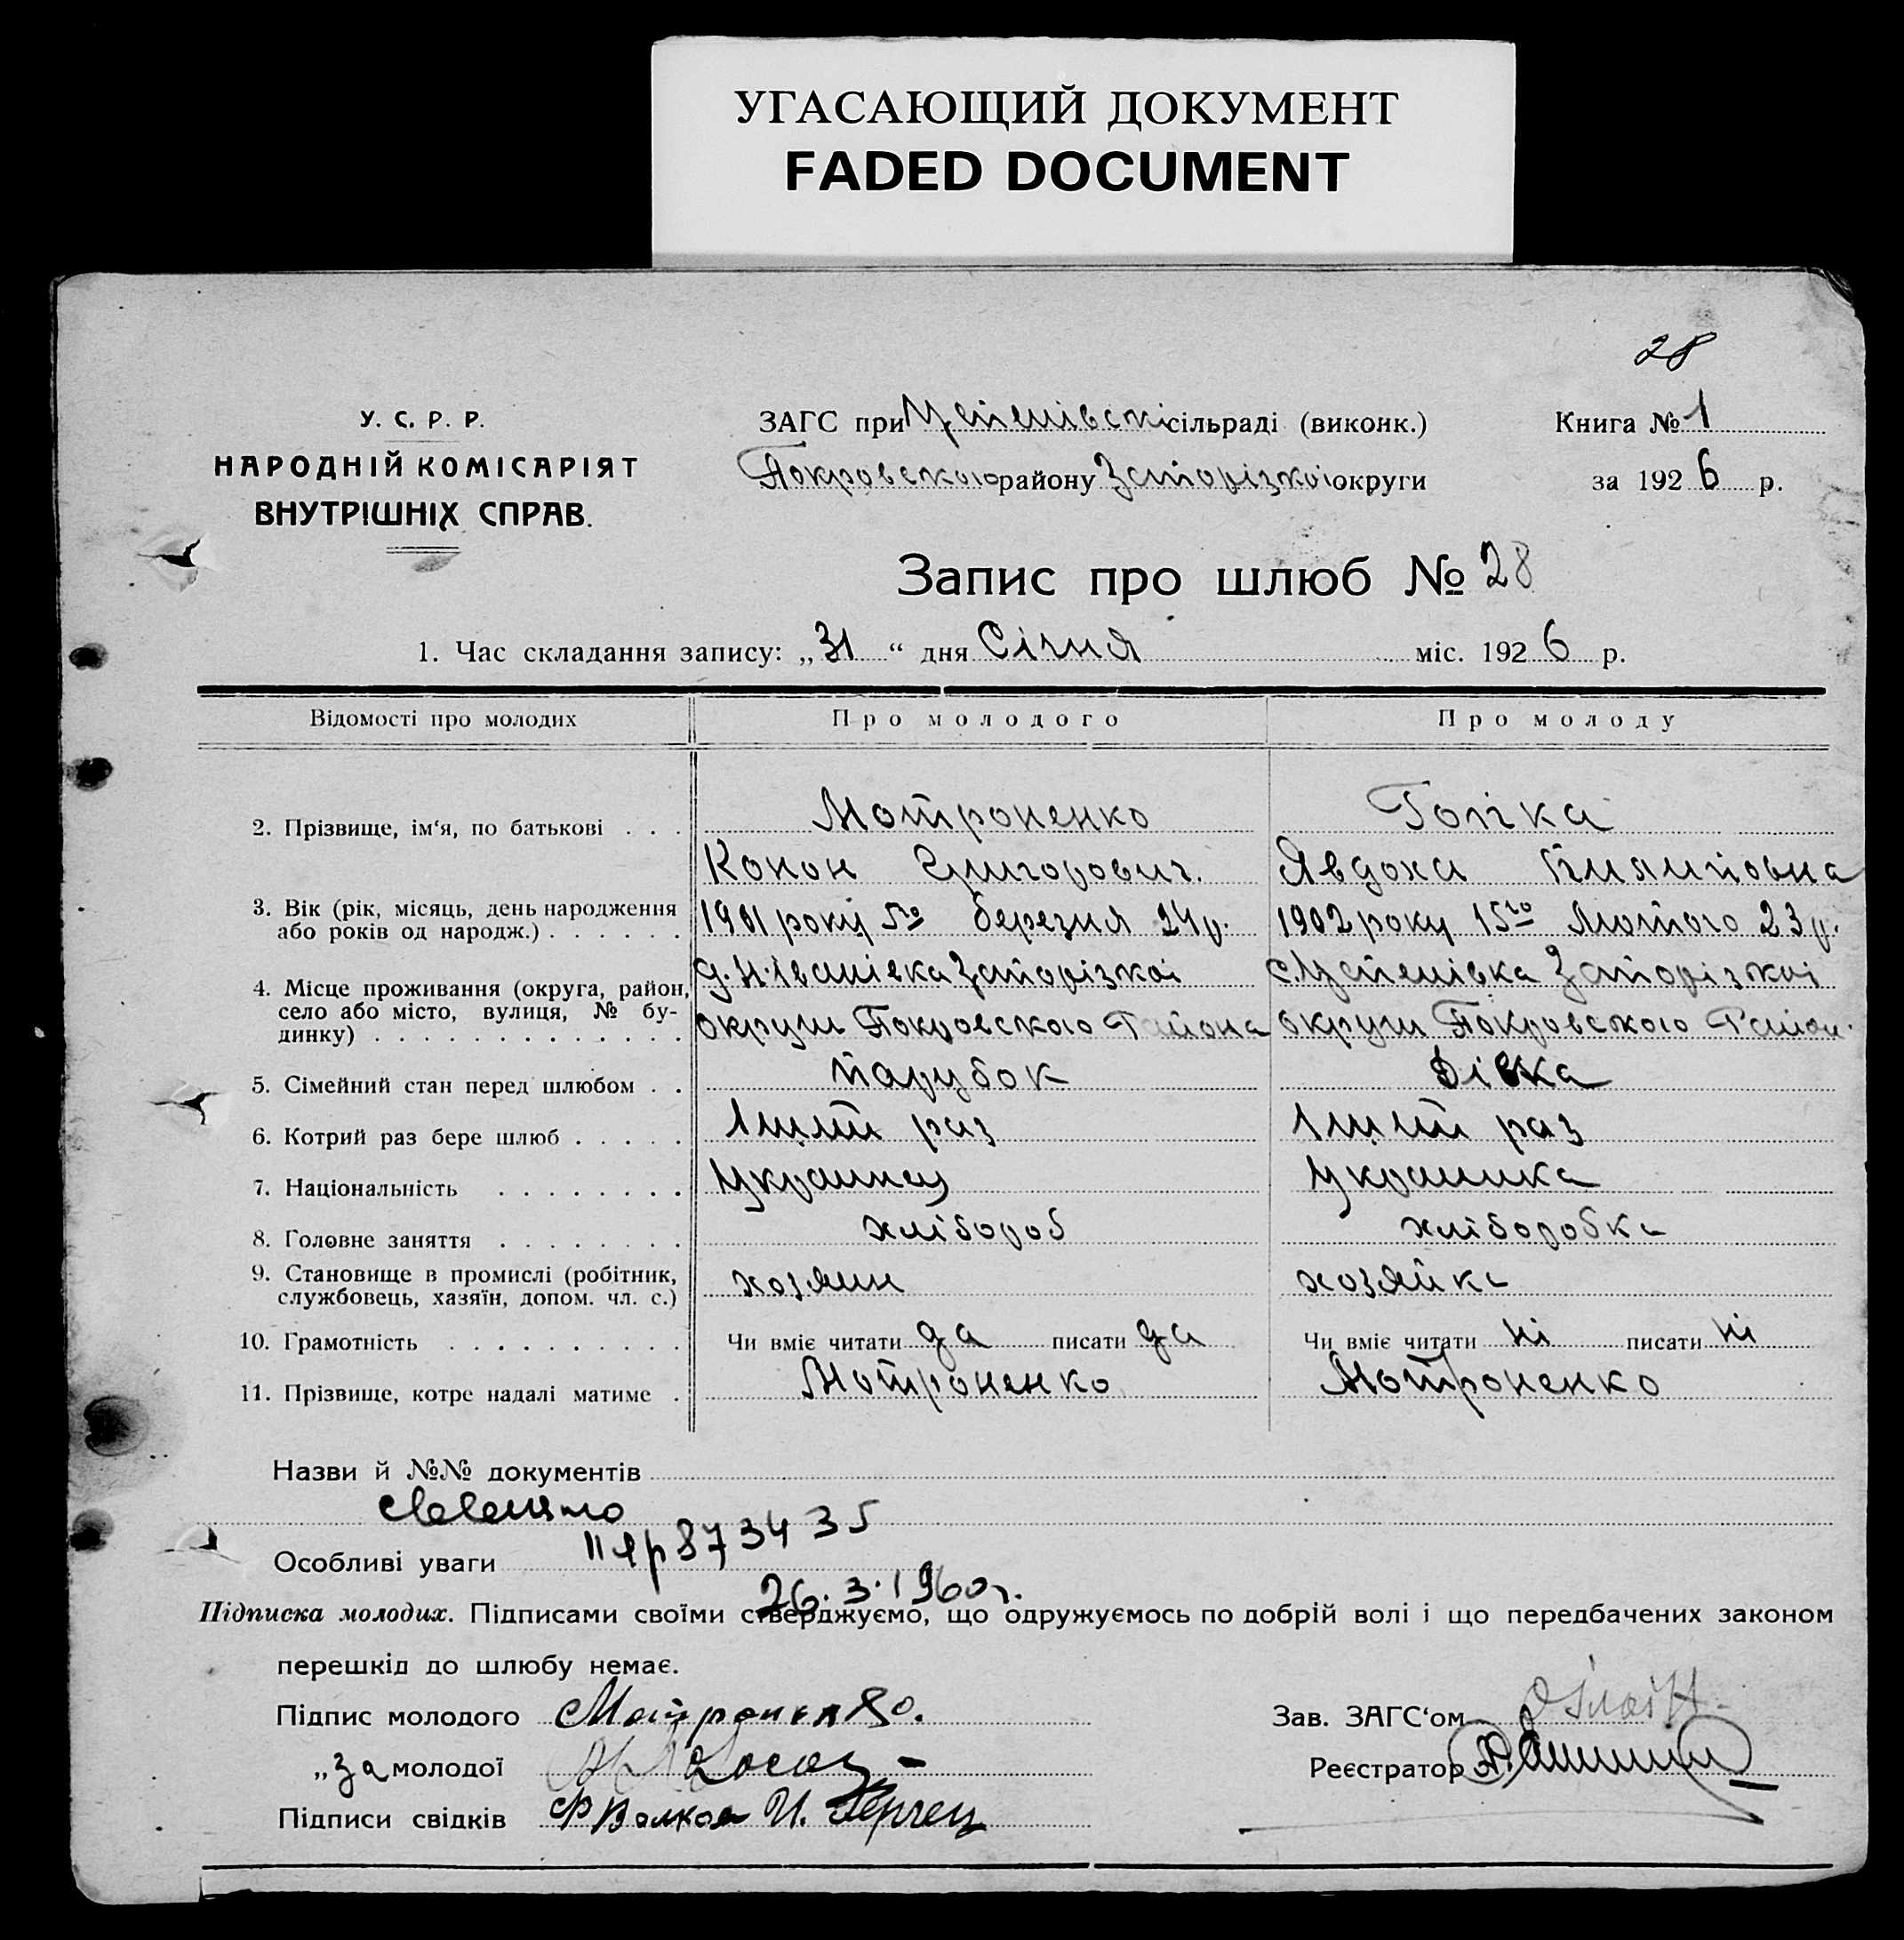 УГАСАЮЩИЙ ДОКУМЕНТ
FADED DOCUMENT
28
У. С. Р. Р.
НАРОДНІЙ КОМІСАРІЯТ
ВНУТРІШНІХ СПРАВ.
ЗАГС при Успенівскі сільраді (виконк.)
Покровського району Запорізкоі округи
Книга № 1
за 1926 р.
Запис про шлюб № 28
1. Час складання запису: „31“ дня Січня міс. 1926 р.
Відомості про молодих Про молодого Про молоду
2. Прізвище, ім‘я, по батькові . . . Мотроненко Голіка
Конон Григорович. Явдоха Пилиповна
3. Вік (рік, місяць, день народження або років од народж.) . . . . . . 1901 року 5го березня 24 р. 1902 року 15го Лютого 23 р.
4. Місце проживання (округа, район, село або місто, вулиця, № будинку) . . . . . . . . . . . . . д. Н. Іванівка Запорізкоі с. Успенівка Запорізкоі
округи Покровского Района округи Покровского Район.
5. Сімейний стан перед шлюбом . . парубок Дівка
6. Котрий раз бере шлюб . . . . . 1ший раз 1ший раз
7. Національність . . . . . . . . Украинец Украинка
8. Головне заняття . . . . . . . . хлібороб хліборобка
9. Становище в промислі (робітник, службовець, хазяїн, допом. чл. с.) хозяин хозяйка
10. Грамотність . . . . . . . . . . Чи вміє читати да писати да Чи вміє читати ні писати ні
11. Прізвище, котре надалі матиме . Мотроненко Мотроненко
Назви й №№ документів
Особливі уваги II яр 873435
26.3.1960г.
Підписка молодих. Підписами своїми стверджуємо, що одружуємось по добрій волі і що передбачених законом
перешкід до шлюбу немає.
Підпис молодого Мотроненко.
Зав. ЗАГС‘ом
„ за молодої
Реєстратор
Підписи свідків